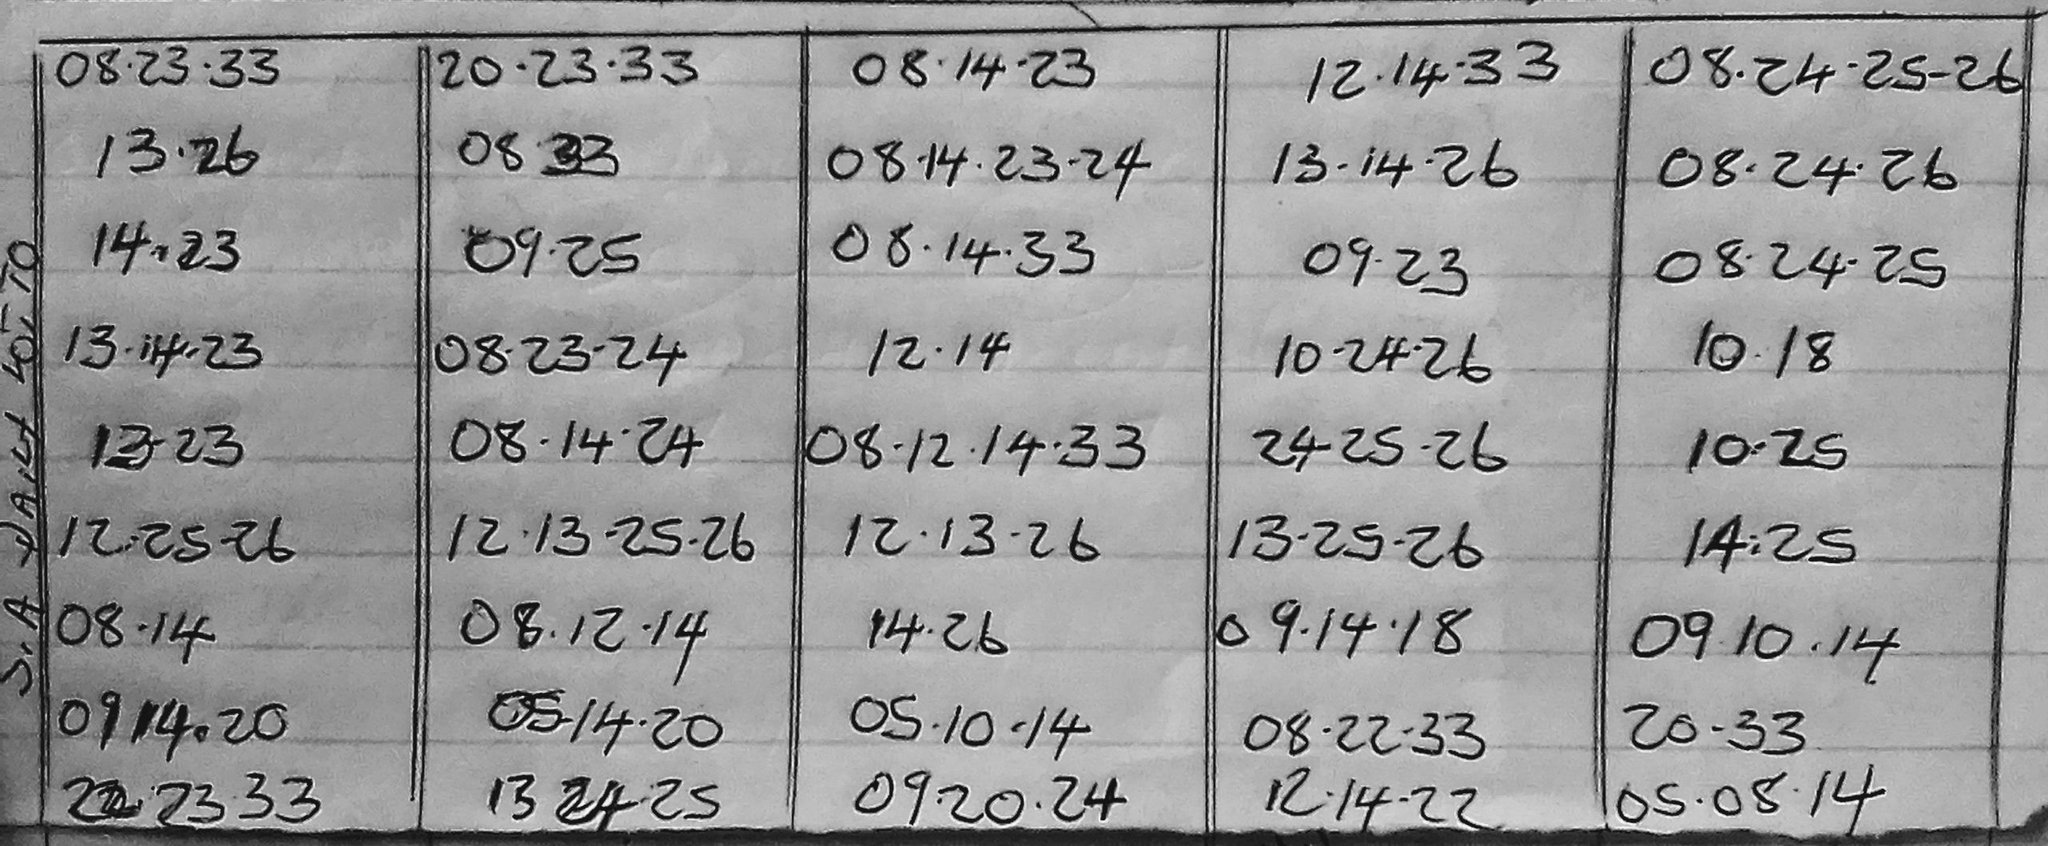 08.23.33 20.23.33 08.14.23 12.14.33 08.24.25-26
13.26 08 33 08.14.23.24 13.14.26 08.24.26
14.23 09.25 08.14.33 09.23 08.24.25
13.14.23 08.23-24 12.14 10-24-26 10.18
13-23 08.14.24 08.12.14.33 24-25-26 10.25
12.25-26 12.13-25-26 12.13-26 13-25-26 14.25
08.14 08.12.14 14.26 09.14.18 09.10.14
09 14.20 05-14.20 05.10.14 08.22.33 20-33
22.23.33 13 24.25 09.20.24 12.14-22 05.08.14
S.A DAILY LOTTO